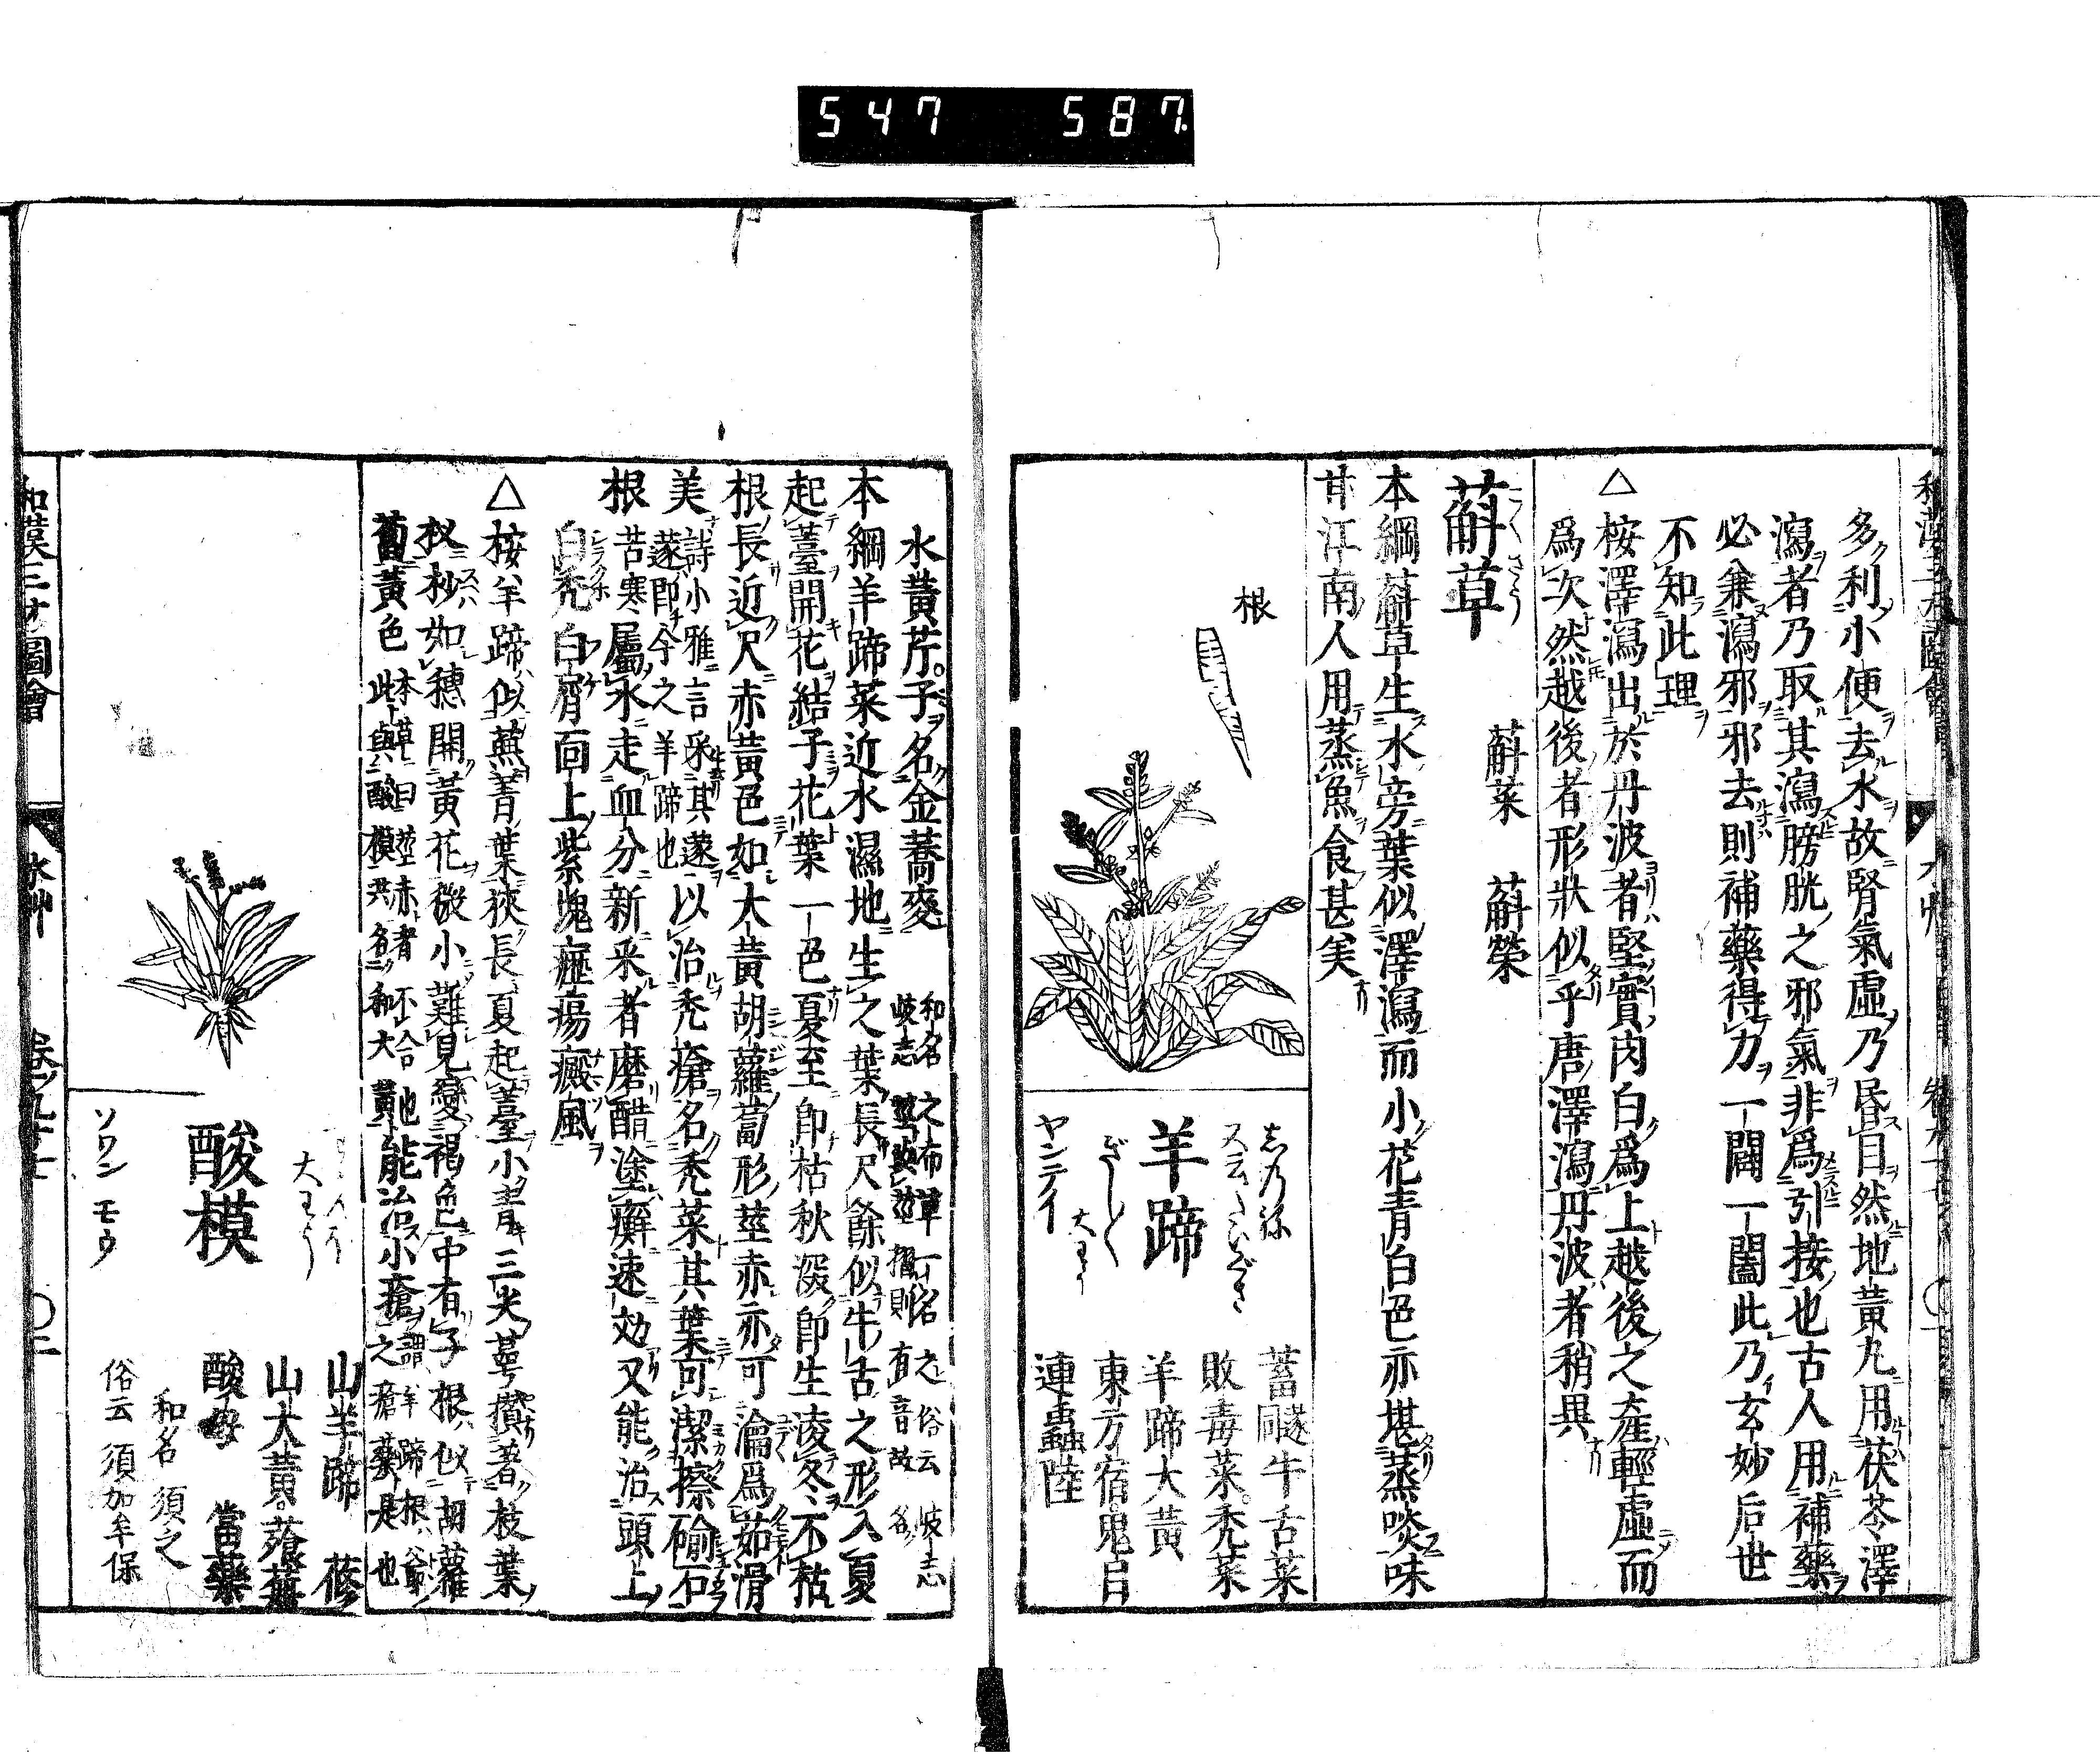 547 587
多利小便去水故腎氣虛乃昏目然地黃丸用茯苓澤
瀉者乃取其瀉膀胱之邪氣非爲引接也古人用補藥
必兼瀉邪邪去則補藥得力一闢一闔此乃玄妙后世
不知此理
△桉澤瀉出於丹波者堅實肉白爲上越後之產輕虛而
爲次然越後者形狀似乎唐澤瀉丹波者稍異
蔛草 蔛菜 蔛榮
本綱蔛草生水旁葉似澤瀉而小花青白色亦堪蒸啖味
甘江南人用蒸魚食甚美
根
羊蹄
ヤンテイ
蓄 同蓫 牛舌菜
敗毒菜 禿菜
羊蹄大黃
東方宿 鬼目
連蟲陸
水黃芹 子名金蕎麥
本綱羊蹄菜近水濕地生之葉長尺餘似牛舌之形入夏
起薹開花結子花葉一色夏至即枯秋深即生凌冬不枯
根長近尺赤黃色如大黃胡蘿蔔形莖赤亦可瀹爲茹滑
美 詩小雅言采其蓫 蓫即今之羊蹄也 以治禿瘡名禿菜其葉可潔擦礆石
根 苦寒 屬水走血分新采者磨醋塗癬速効又能治頭上
白禿白屑面上紫塊癧瘍癜風
△桉羊蹄似蕪菁葉狹長夏起薹小青三尖蕚攅著枝葉
杈杪如穗開黃花微小難見變褐色中有子根似胡蘿
蔔黃色 本草曰莖赤者不合也 此與酸模共名和大黃 能治小瘡 謂羊蹄根 之瘡藥是也
酸模
ソワン モウ
山羊蹄 蓚
山大黃 蕵蕪
酸母 當藥
和名 須之
俗云 須加牟保
和漢三才圖會 水艸 卷ノ九十七 〇二